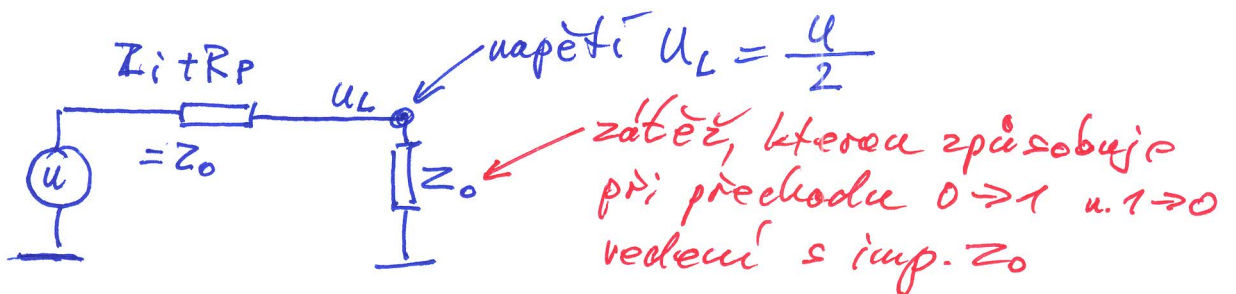 Zi + Rp
= Z₀
u
uL
napětí UL = u/2
Z₀
zátěž, kterou způsobuje
při přechodu 0→1 n. 1→0
vedení s imp. Z₀